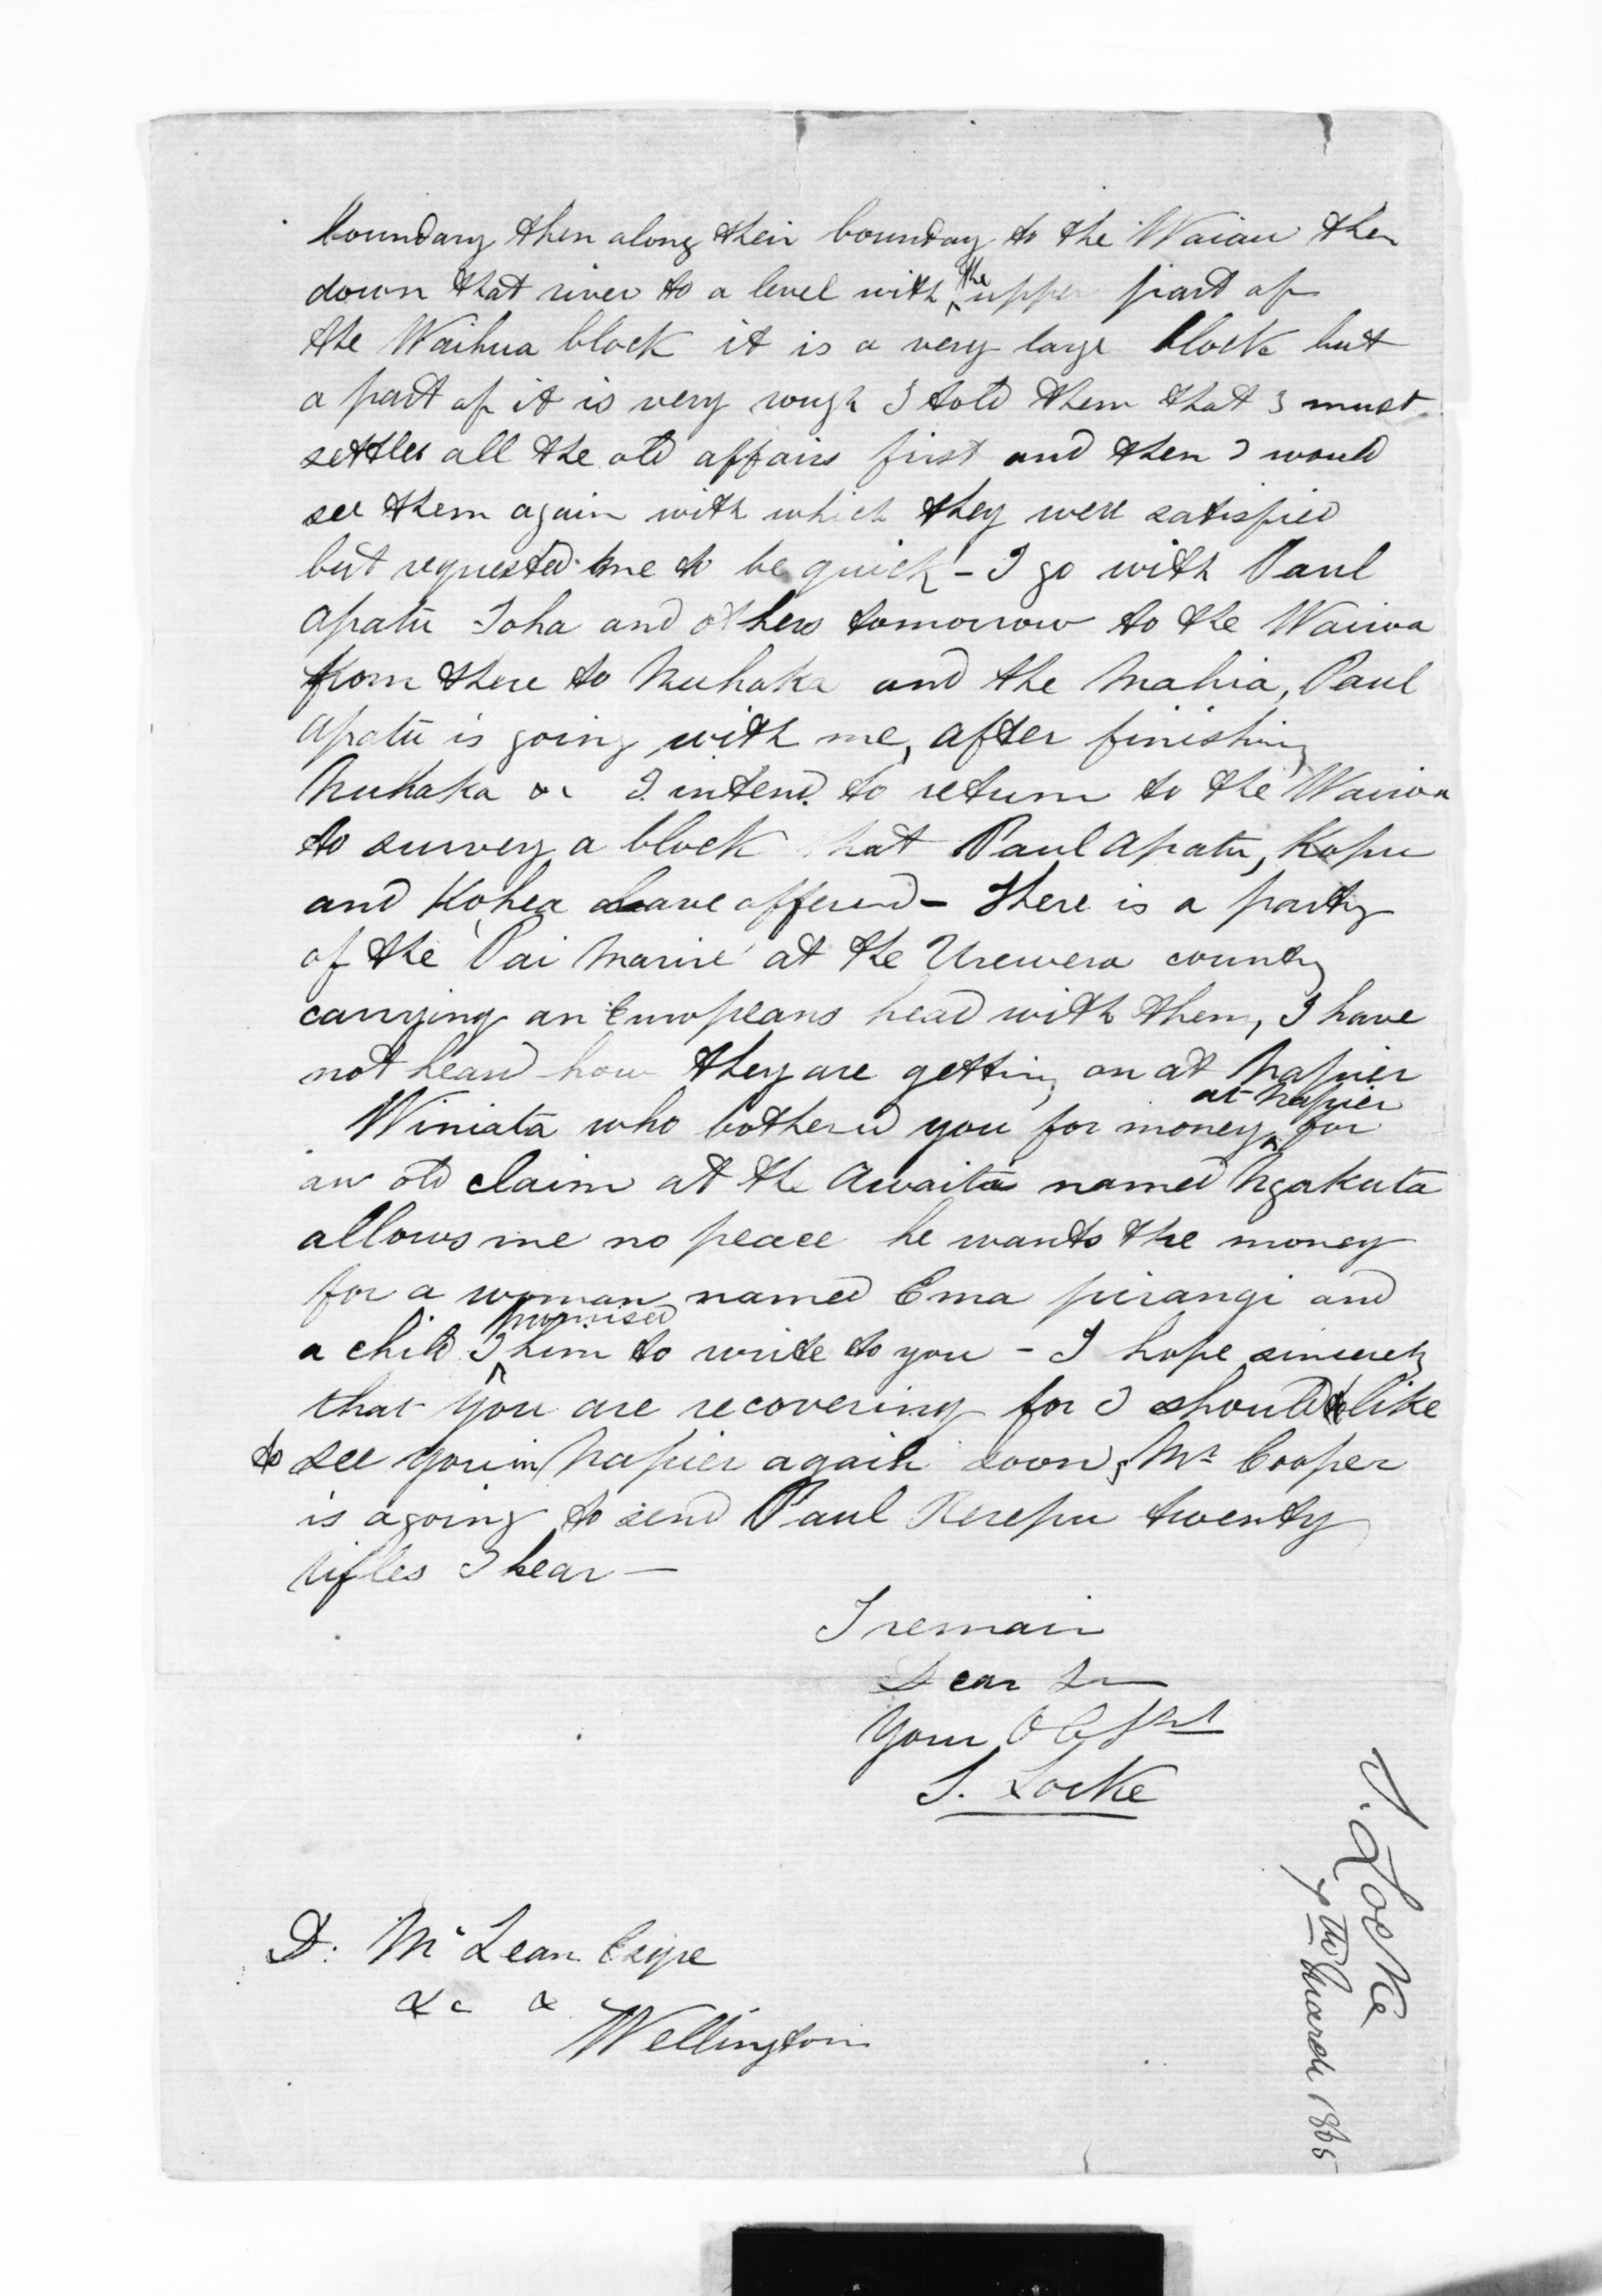 boundary then along their boundary to the Waiau then
down that river to a level with the upper part of
the Waihua block it is a very large block but
a part of it is very rough I told them that I must
settle all the old affairs first and then I would
see them again with which they were satisfied
but requested me to be quick - I go with Paul
Apatu Toha and others tomorrow to the Wairoa
from there to Nuhaka and the Mahia, Paul
Apatu is going with me, after finishing
Nuhaka &c I intend to return to the Wairoa
to survey a block that Paul Apatu, Kopu
and Kohea have offered - There is a party
of the 'Pai Marire' at the Urewera country
carrying an Europeans head with them, I have
not heard how they are getting on at Napier
Winiata who bothered you for money at Napier for
an old claim at the Awaitu named Ngakuta
allows me no peace he wants the money
for a woman named Ema pirangi and
a child I promised him to write to you - I hope sincerely
that you are recovering for I should like
to see you in Napier again soon, Mr Cooper
is agoing to send Paul Rerepu twenty
rifles I hear -
I remain
Dear Sir
Your Obt Svt
S. Locke
D. McLean Esqre
&c &
Wellington
S. Locke
7th March 1865